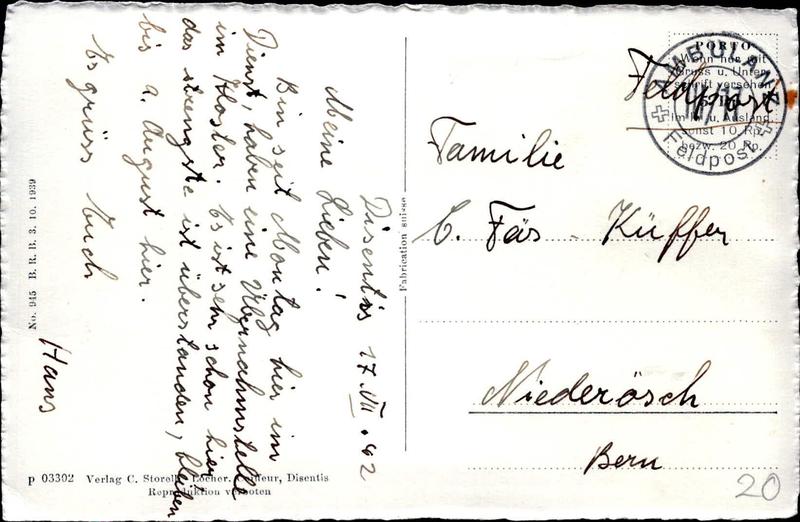 Disentis 17.VII.42
Meine Lieben!
Bin seit Montag hier im
Dienst, haben eine Übernahmstelle
im Kloster. Es ist sehr schön hier
das strengste ist überstanden, bleiben
bis a. August hier.
Es grüss Euch
Hans
No. 945 B. R. B. 3. 10. 1939
p 03302 Verlag C. Storelli, Locher, Coiffeur, Disentis
Reproduktion verboten
Fabrication suisse
PORTO
Wenn nur mit
Gruss u. Unter-
schrift versehen
im In- u. Ausland
sonst 10 Rp.
bezw. 20 Rp.
Feldpost
Feldpost
Familie
C. Fäs - Küffer
Niederösch
Bern
20